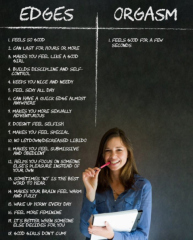 EDGES
ORGASM
1. FEELS SO GOOD
2. CAN LAST FOR HOURS OR MORE
3. MAKES YOU FEEL LIKE A GOOD
GIRL
4. BUILDS DISCIPLINE AND SELF-
CONTROL
5. KEEPS YOU WET AND NEEDY
6. FEEL SEXY ALL DAY
7. CAN HAVE A QUICK EDGE ALMOST
ANYWHERE
8. MAKES YOU MORE SEXUALLY
ADVENTUROUS
9. DOESN'T FEEL SELFISH
10. MAKES YOU FEEL SPECIAL
11. NO LETDOWN/DECREASED LIBIDO
12. MAKES YOU FEEL SUBMISSIVE
AND OBEDIENT
13. HELPS YOU FOCUS ON SOMEONE
ELSE'S PLEASURE INSTEAD OF
YOUR OWN
14. SOMETIMES "NO" IS THE BEST
WORD TO HEAR
15. MAKES YOUR BRAIN FEEL WARM
AND FUZZY
16. WAKE UP HORNY EVERY DAY
17. FEEL MORE FEMININE
18. IT'S BETTER WHEN SOMEONE
ELSE DECIDES FOR YOU
19. GOOD GIRLS DON'T CUM!
1. FEELS GOOD FOR A FEW
SECONDS